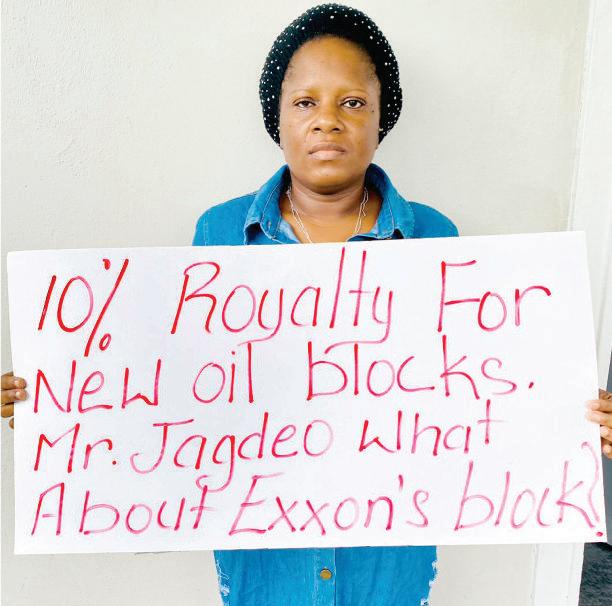 10% Royalty For
New oil blocks.
Mr. Jagdeo What
About Exxon's block?